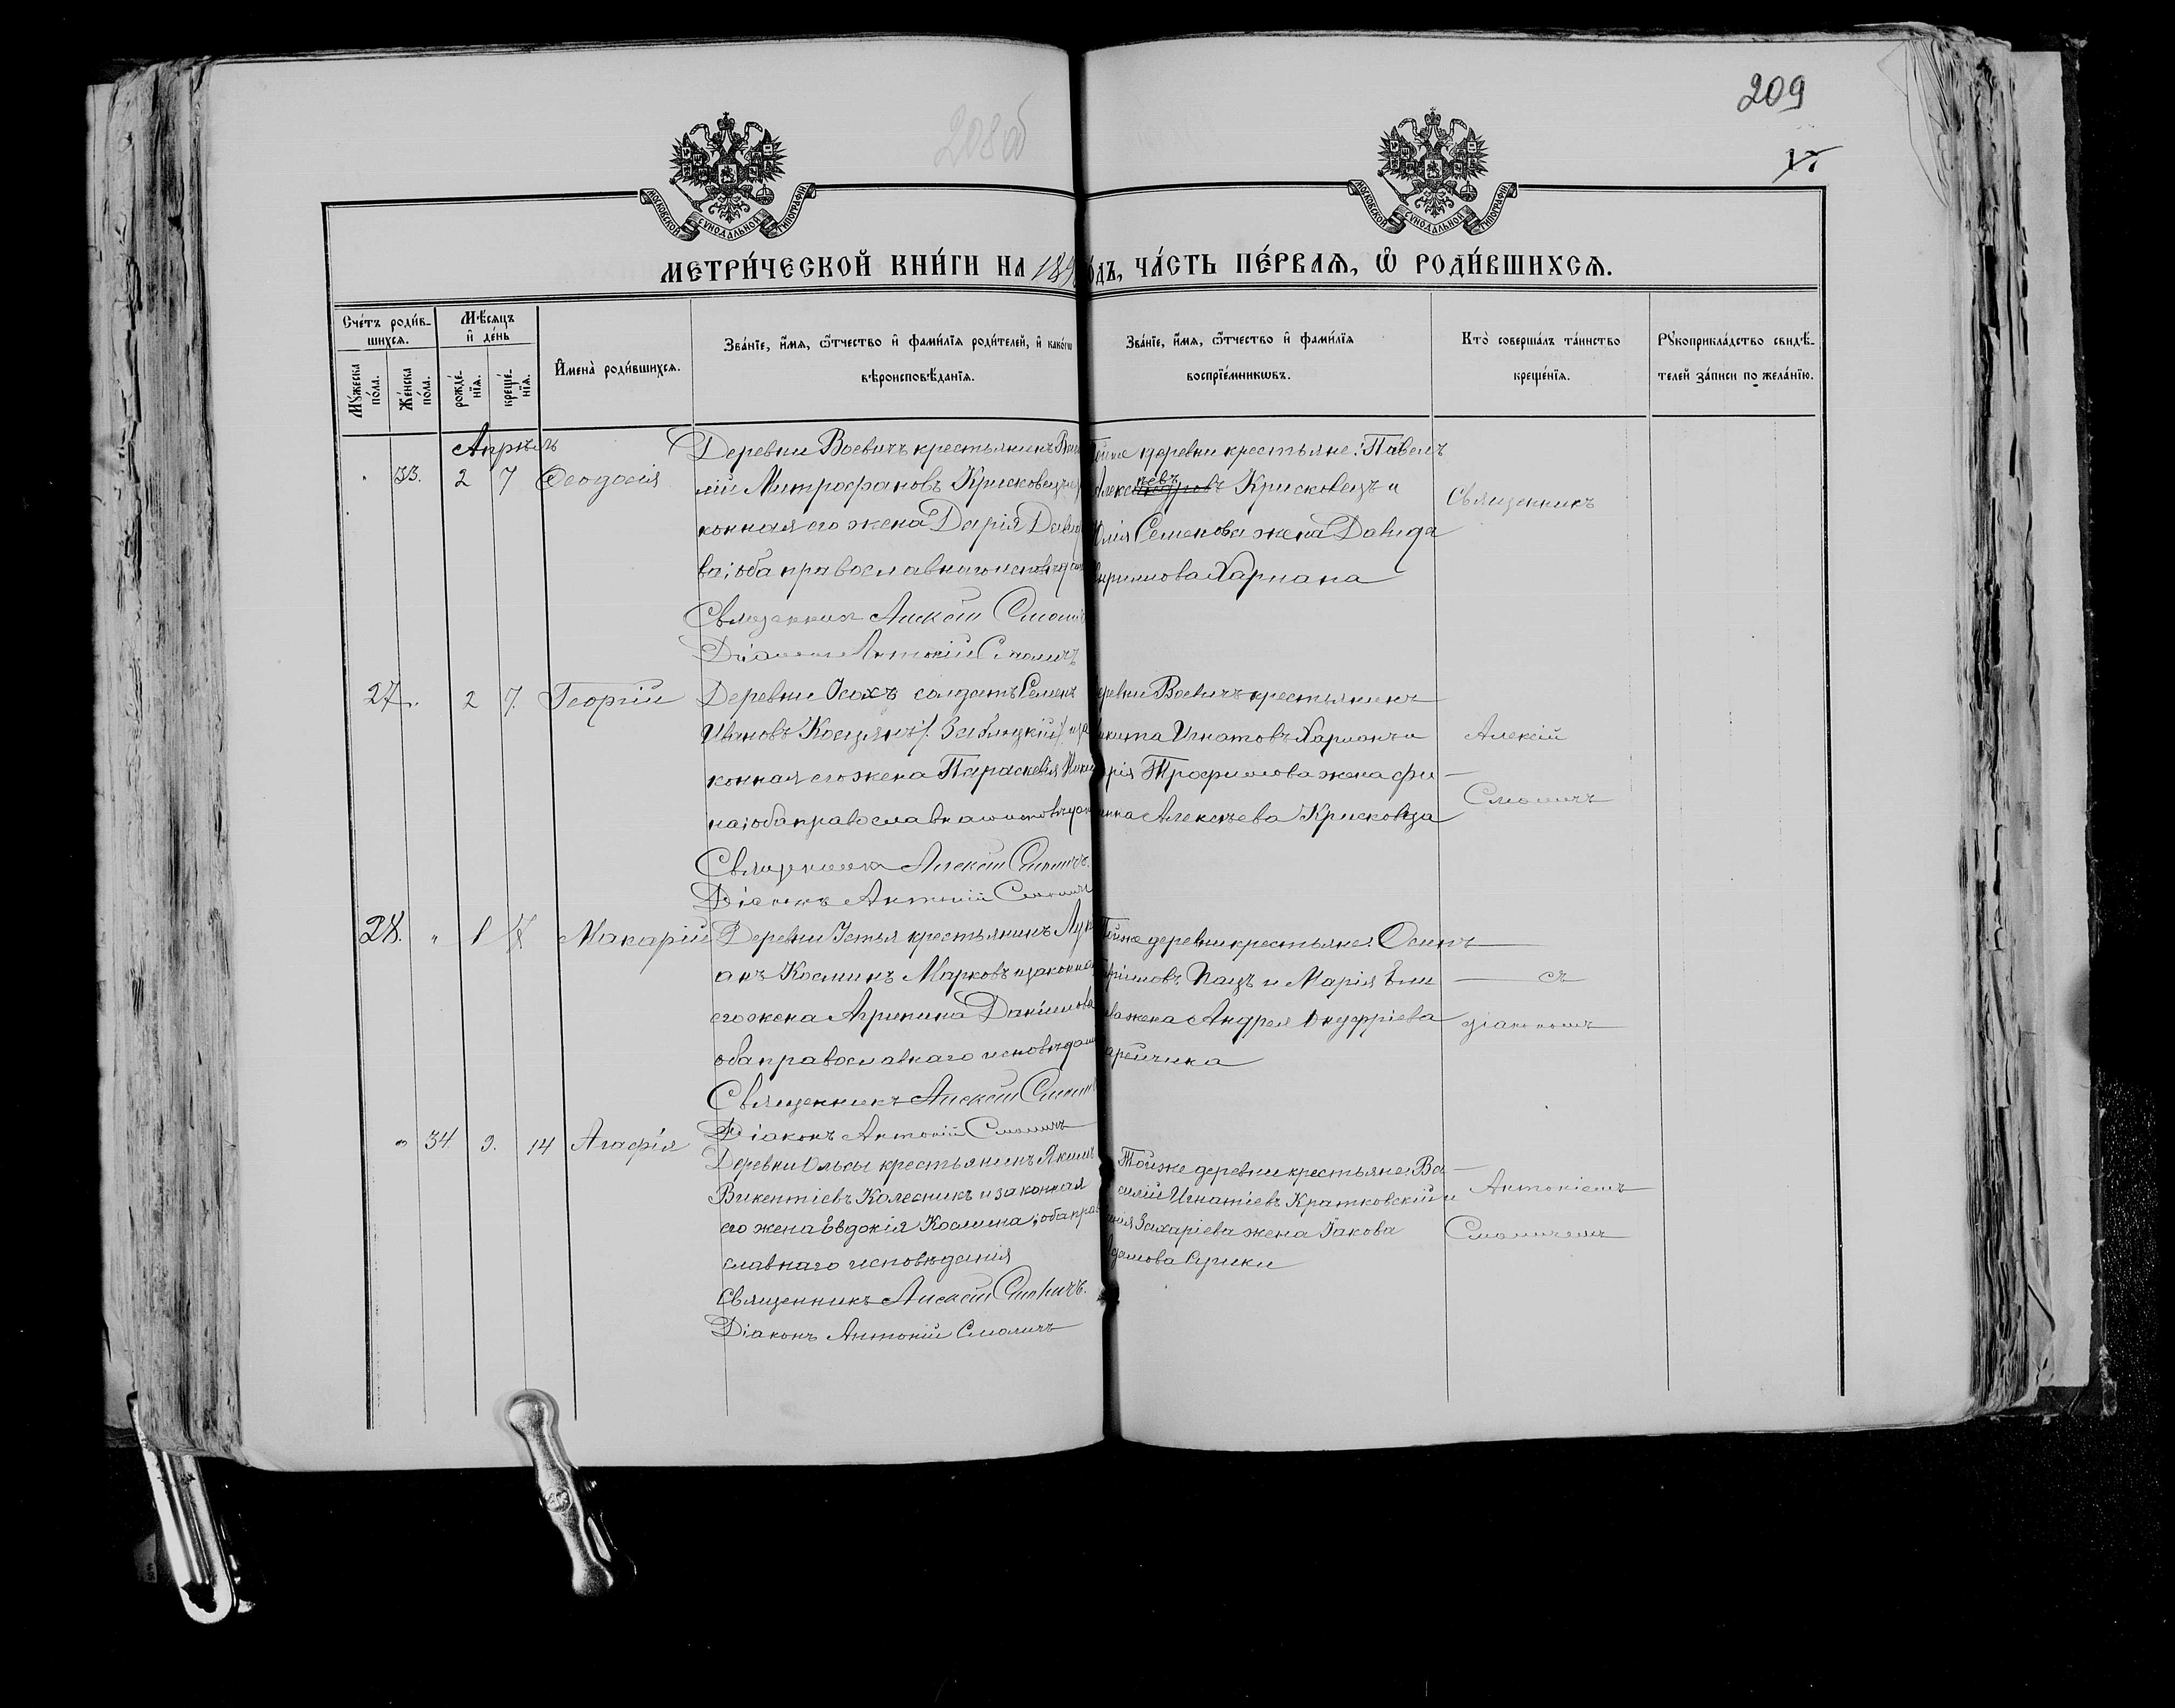 209
208об
17
МОСКОВСКОЙ СУНОДАЛЬНОЙ ТИПОГРАФІИ
МОСКОВСКОЙ СУНОДАЛЬНОЙ ТИПОГРАФІИ
МЕТРИ́ЧЕСКОЙ КНИ́ГИ НА 189 о́дъ, ЧА́СТЬ ПЕ́РВАѦ, Ѽ РОДИ́ВШИХСѦ.
Сче́тъ роди́в-
шихсѧ.
Мꙋ́жеска по́ла.
Же́нска по́ла.
Мѣ́сѧцъ и҆ де́нь
рожде́-
нїѧ.
креще́-
нїѧ.
И҆мена̀ роди́вшихсѧ.
Зва́нїе, и҆́мѧ, ѻ҆́тчество и҆ фами́лїѧ роди́телей, и҆ како́гѡ
вѣроисповѣ́данїѧ.
Зва́нїе, и҆́мѧ, ѻ҆́тчество и҆ фами́лїѧ
воспрїе́мникѡвъ.
Кто̀ соверша́лъ та́инство
креще́нїѧ.
Рꙋкоприкла́дство свидѣ́-
телей за́писи по жела́нїю.
Апрѣль
33. 2 7 Ѳеодосія
Деревни Воевичъ крестьянинъ Ва
лій Митрофановъ Крисковецъ и
конная его жена Дарія Дави
ва; оба православнаго исповѣдан
Священникъ Алексій Смолич
Діаконъ Антоній Смоличъ
тойже деревни крестьяне: Павелъ
Алексѣевъ Крисковецъ и
Семенова жена Давида
Харпана
Священникъ
27. 2 7. Георгій
Деревни Осохъ солдатъ Семенъ
Ивановъ Косцянъ /: Заблоцкій :/ и за
конная его жена Параскевія Ники
на; оба православнаго исповѣдан
Священникъ Алексій Смоличъ.
Діаконъ Антоній Смоличъ
ревни Воевичъ крестьянинъ
икита Игнатовъ Харпанъ и
рія Трофимова жена Фи-
ппа Алексѣева Крисковца
Алексій
Смоличъ
28. " 1 7 Макарій
Деревни Устья крестьянинъ Лукі
анъ Косминъ Марковъ и законная
его жена Агрипина Даніилова
оба православнаго исповѣдан
Священникъ Алексій Смолич
Діаконъ Антоній Смоличъ
Тойже деревни крестьяне: Осипъ
Пацъ и Марія
ва жена Андрея Онуфріева
арейчика
съ
діакономъ
" 34 9. 14 Агафія
Деревни Ольсы крестьянинъ Якимъ
Викентіевъ Колесникъ и законная
его жена Евдокія Космина; оба прав
славнаго исповѣданія
Священникъ Алексій Смоличъ.
Діаконъ Антоній Смоличъ
Тойже деревни крестьяне: Ва-
силій Игнатіевъ Кратковскій и
Захаріева жена Іакова
дамова
Антоніемъ
Смоличемъ